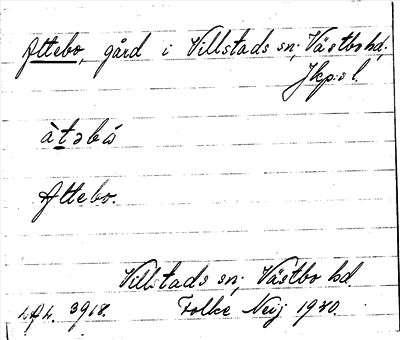 Attebo, gård i Villstads sn; Västbo hd;
Jkp:s l.
àtəbó
Attebo.
Villstads sn; Västbo hd.
Folke Neij 1930.